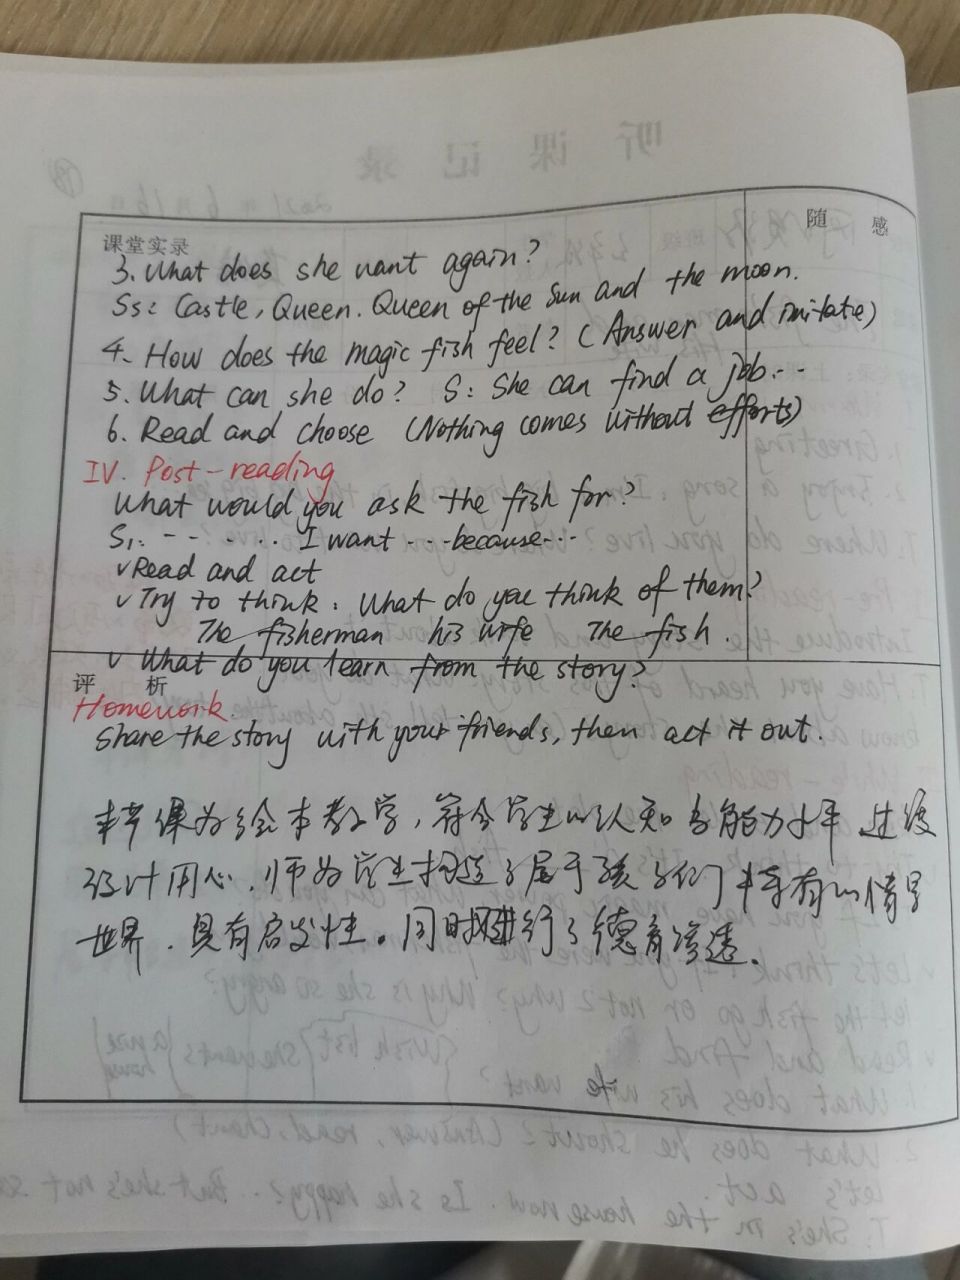 随 感
课堂实录
3. What does she want again?
Ss: Castle, Queen. Queen of the Sun and the moon.
4. How does the magic fish feel? (Answer and imitate)
5. What can she do? S: She can find a job...
6. Read and choose (Nothing comes without efforts)
IV. Post-reading
What would you ask the fish for?
S1: ...... I want ... because...
√ Read and act
√ Try to think: What do you think of them?
The fisherman his wife The fish.
√ What do you learn from the story?
评 析
Homework.
Share the story with your friends, then act it out.
本节课为绘本教学,符合学生的认知与能力水平 过渡
设计用心.师为学生构造了属于孩子们 有的情景
世界.具有启发性。同时进行了德育渗透.